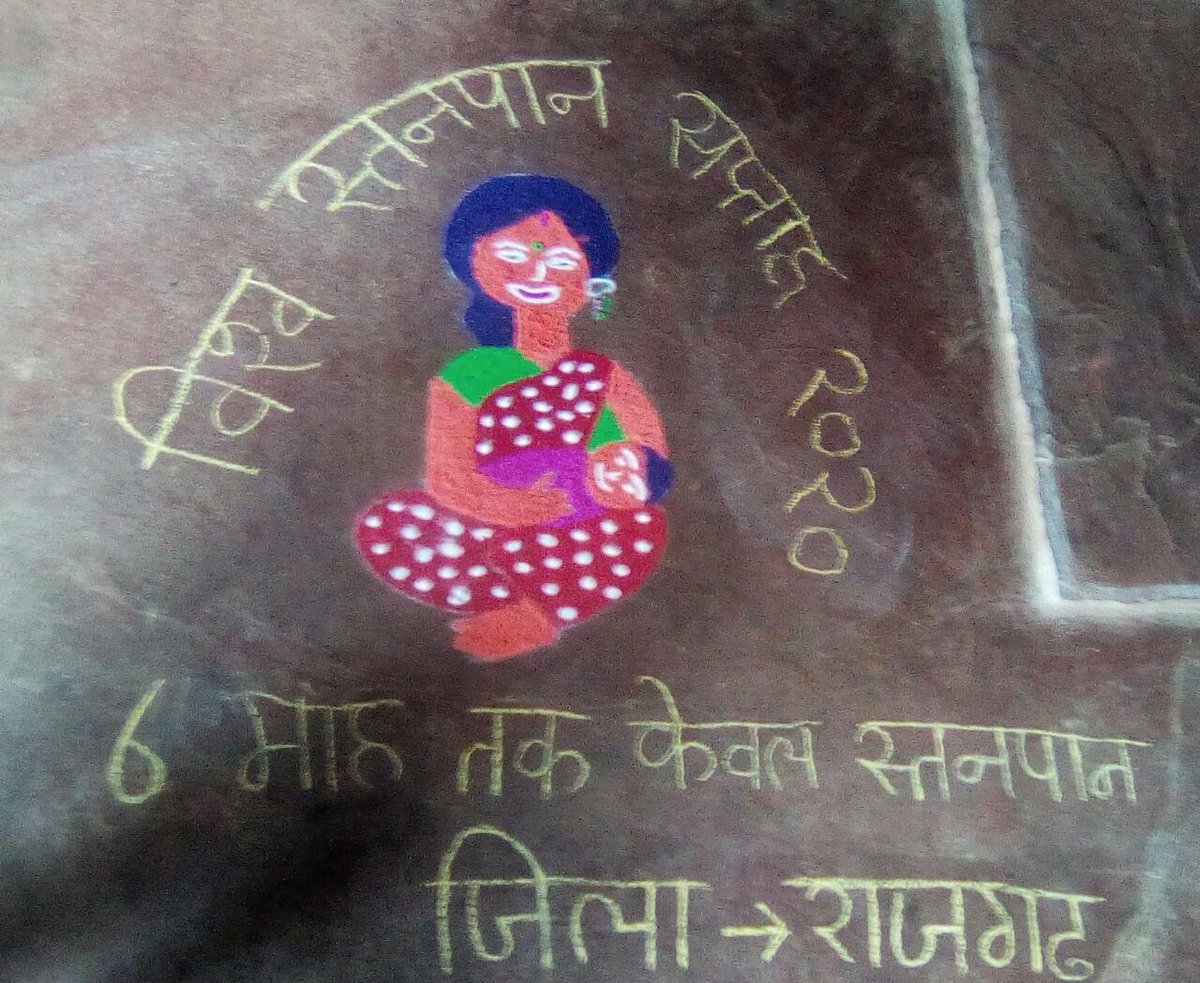 विश्व स्तनपान सप्ताह २०२०
6 माह तक केवल स्तनपान
जिला → राजगढ